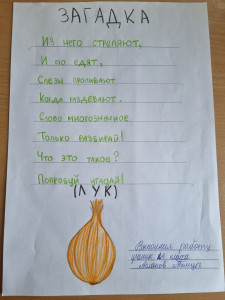 ЗАГАДКА
Из чего стреляют,
И по едят,
Слезы проливают
Когда раздевают.
Слово многозначное
Только разбирай!
Что это такое?
Попробуй угадай!
(ЛУК)
Выполнил работу
ученик